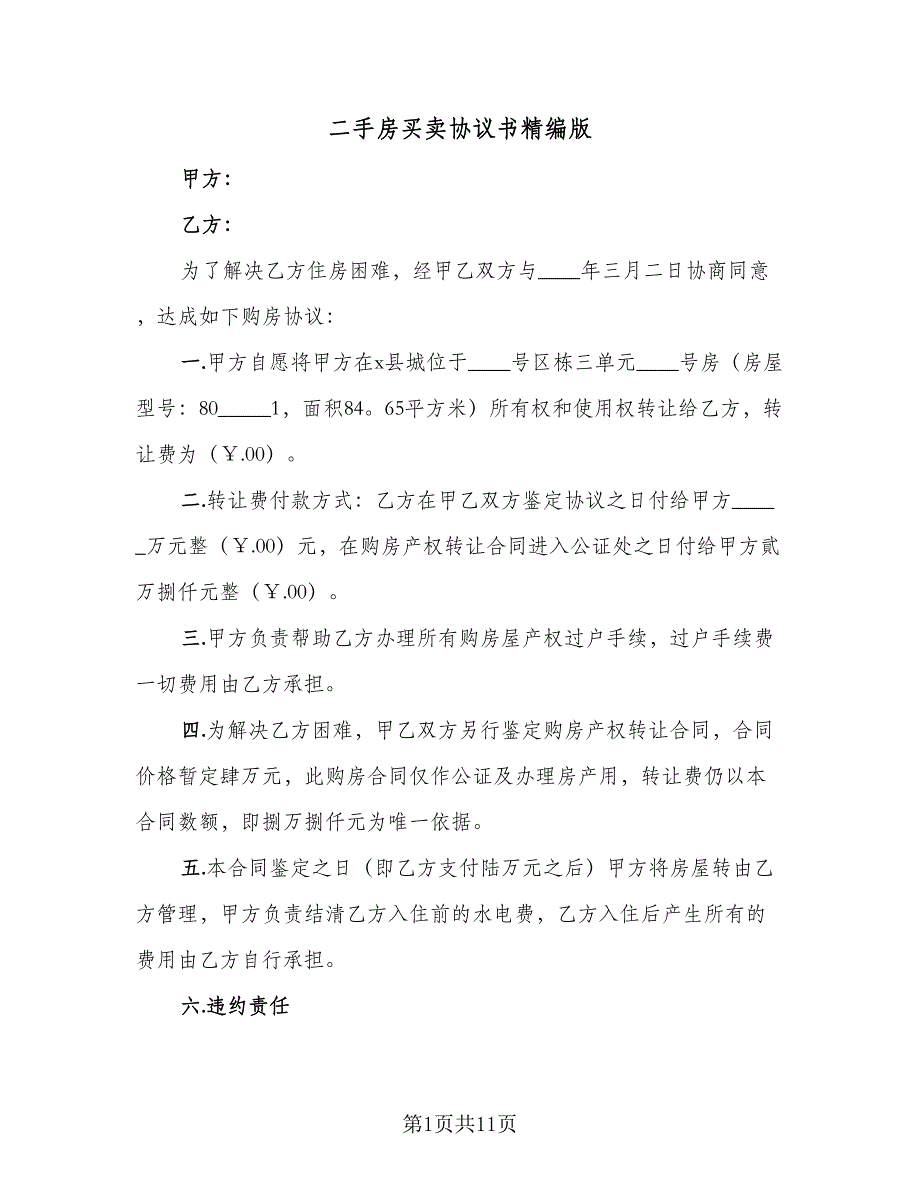 二手房买卖协议书精编版
甲方：
乙方：
为了解决乙方住房困难，经甲乙双方与____年三月二日协商同意
，达成如下购房协议：
一.甲方自愿将甲方在x县城位于____号区栋三单元____号房（房屋
型号：80_____1，面积84。65平方米）所有权和使用权转让给乙方，转
让费为（￥.00）。
二.转让费付款方式：乙方在甲乙双方鉴定协议之日付给甲方____
_万元整（￥.00）元，在购房产权转让合同进入公证处之日付给甲方贰
万捌仟元整（￥.00）。
三.甲方负责帮助乙方办理所有购房屋产权过户手续，过户手续费
一切费用由乙方承担。
四.为解决乙方困难，甲乙双方另行鉴定购房产权转让合同，合同
价格暂定肆万元，此购房合同仅作公证及办理房产用，转让费仍以本
合同数额，即捌万捌仟元为唯一依据。
五.本合同鉴定之日（即乙方支付陆万元之后）甲方将房屋转由乙
方管理，甲方负责结清乙方入住前的水电费，乙方入住后产生所有的
费用由乙方自行承担。
六.违约责任
第1页共11页